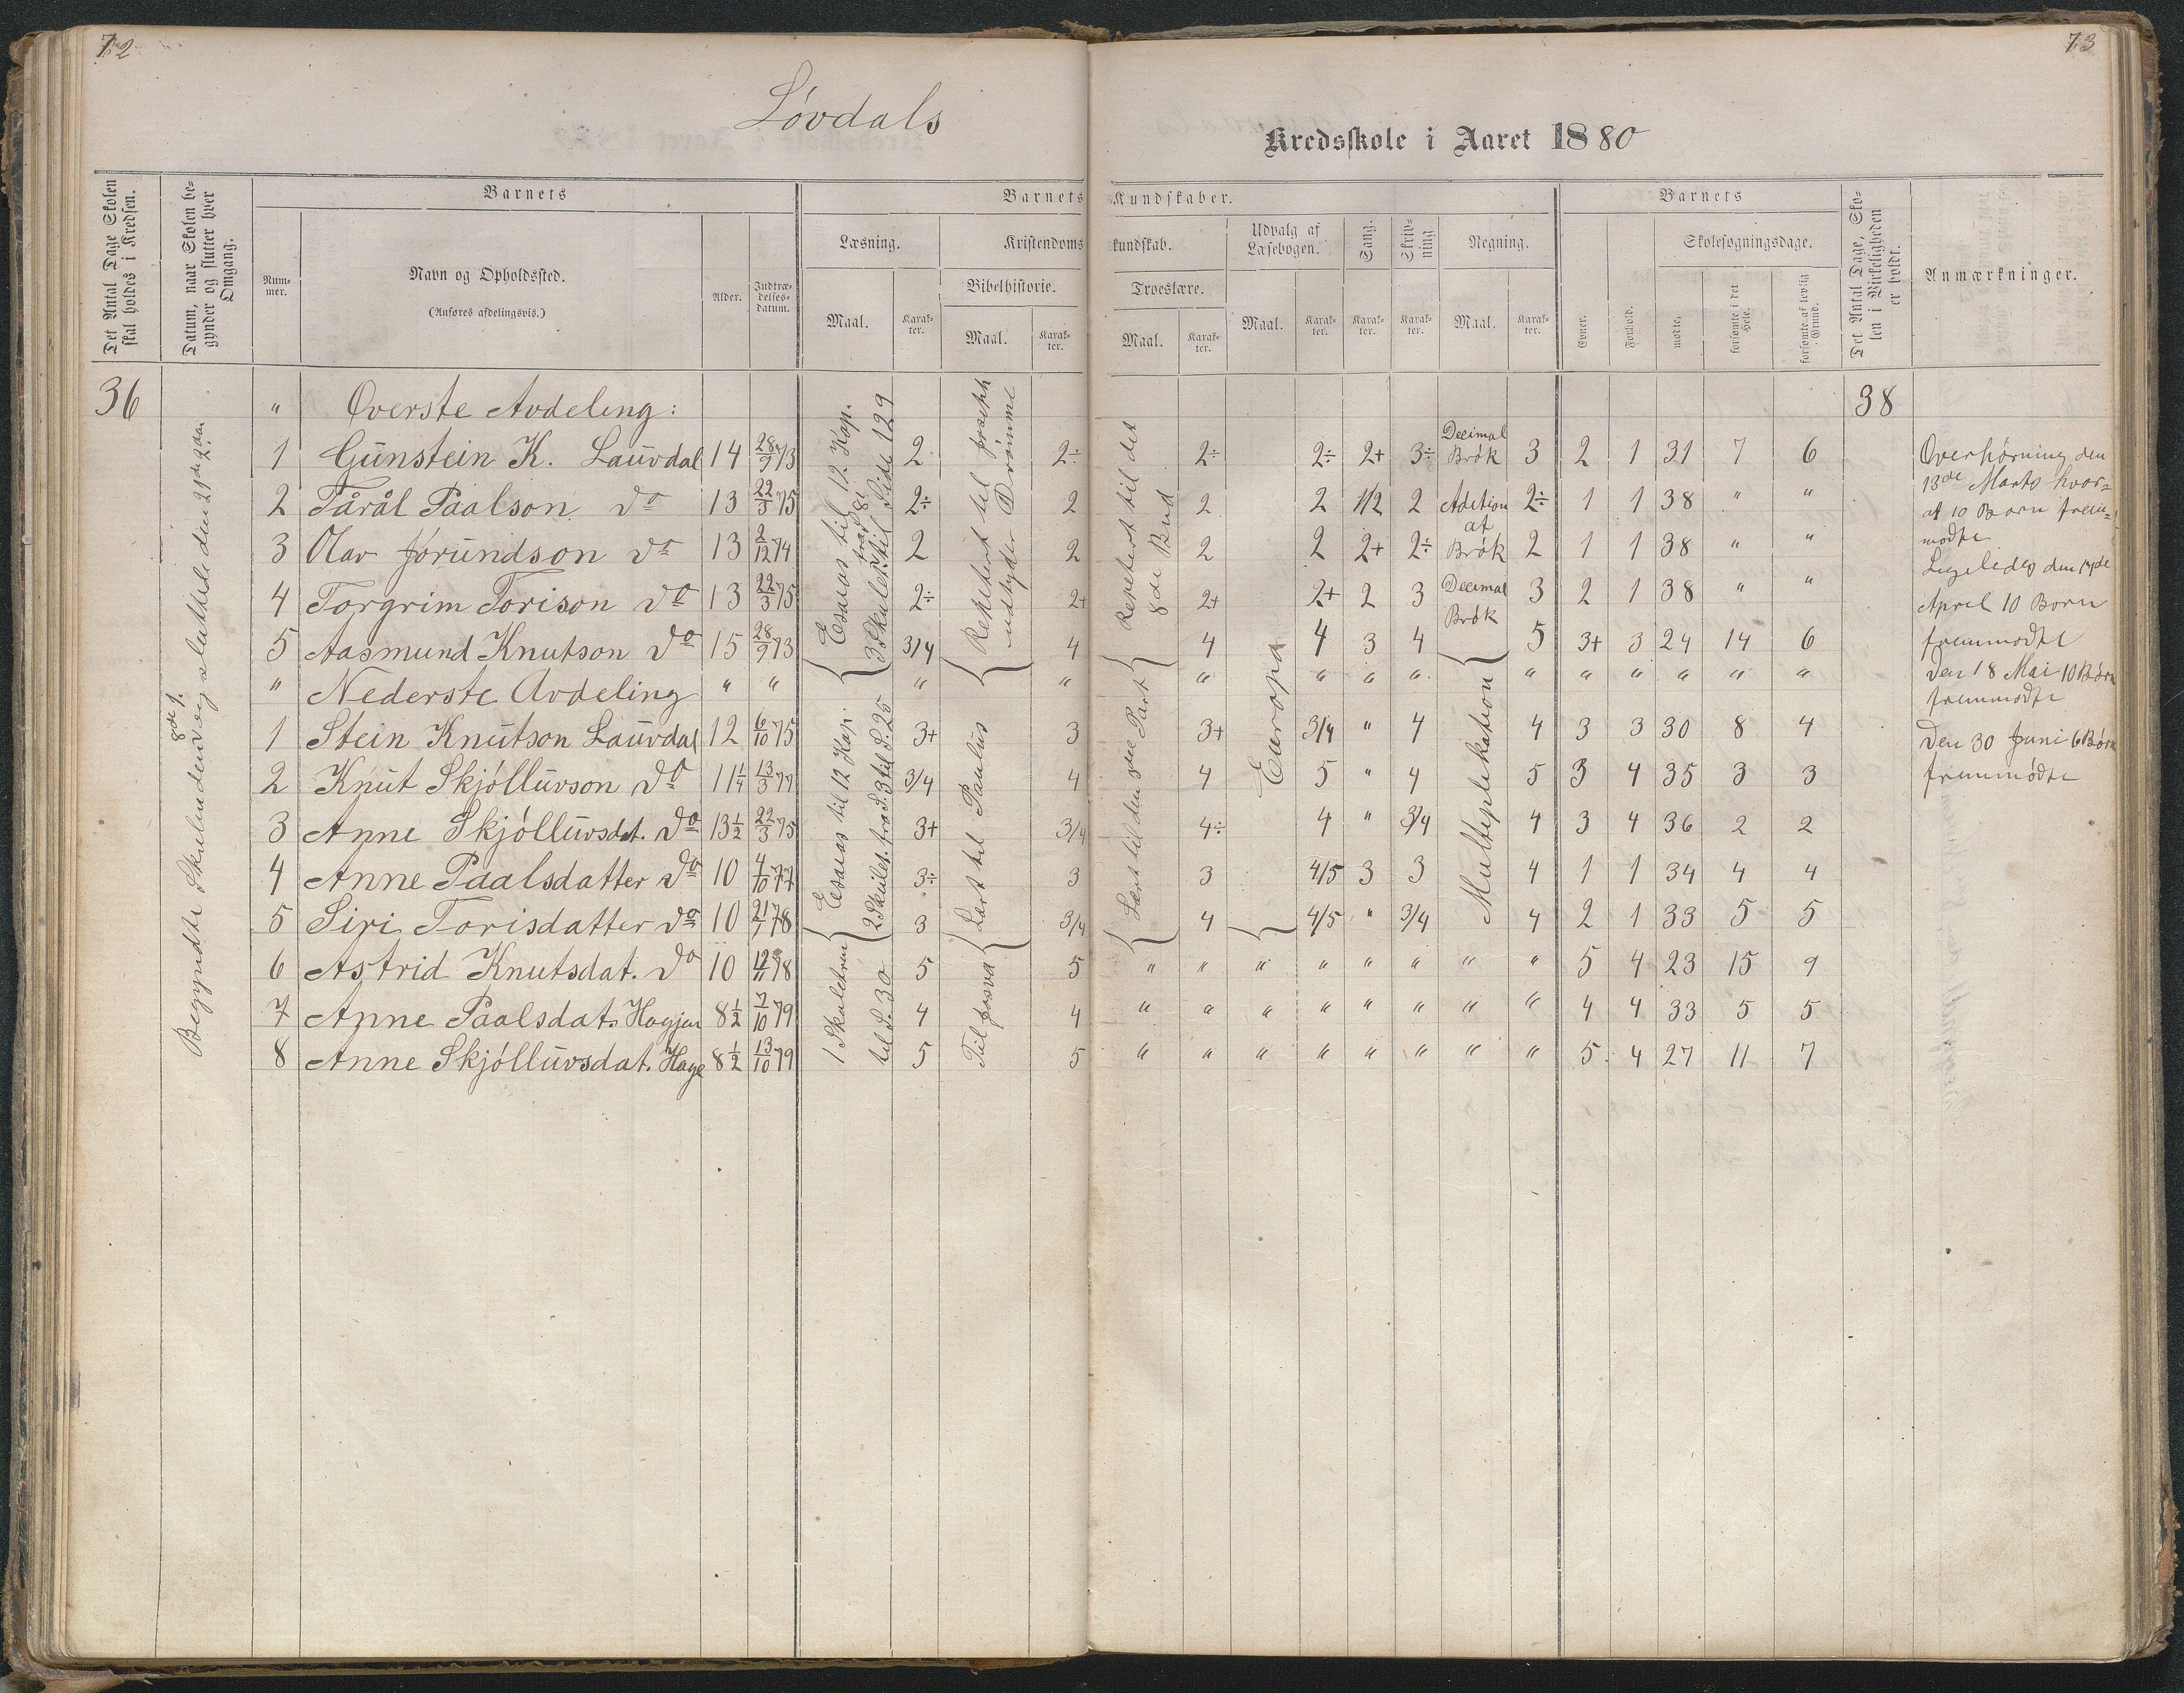 72
73
Lövdals
Kredsskole i Aaret 1880
Det Antal Dage Skolen skal holdes i Kredsen.
Datum, naar Skolen begynder og slutter hver Omgang.
Barnets
Nummer.
Navn og Opholdssted.
(Anføres afdelingsvis.)
Alder.
Indtrædelsesdatum.
Barnets Kundskaber.
Læsning.
Maal.
Karakter.
Kristendomskundskab.
Bibelhistorie.
Maal.
Karakter.
Troeslære.
Maal.
Karakter.
Udvalg af Læsebogen.
Maal.
Karakter.
Sang.
Karakter.
Skrivning
Karakter.
Regning.
Maal.
Karakter.
Barnets
Evner.
Forhold.
Skolesøgningsdage.
mødte,
forsømte i det Hele.
forsømte af lovlig Grund.
Det Antal Dage, Skolen i Virkeligheden er holdt.
Anmærkninger.
36 " Overste Avdeling: 38
1 Gunstein K. Lauvdal 14 28/9 73 2 2÷ 2÷ 2÷ 2+ 3÷ Decimal Brøk 3 2 1 31 7 6
2 Tårål Paalson do 13 22/3 75 2÷ 2 2 2 1/2 2 Adition af 2÷ 1 1 38 " "
3 Olav Jørundson do 13 2/12 74 2 2 2 2 2+ 2÷ Brøk 2 1 1 38 " "
4 Torgrim Torison do 13 22/3 75 2÷ 2+ 2+ 2+ 2 3 Decimal Brøk 3 2 1 38 " "
5 Aasmund Knutson do 15 28/9 73 3/4 4 4 4 3 4 5 3+ 3 24 14 6
" Nederste Avdeling " " " " " " " " " " " " " "
1 Stein Knutson Lauvdal 12 6/10 75 3+ 3 3+ 3/4 " 4 4 3 3 30 8 4
2 Knut Skjöllúvson do 11 1/4 13/3 77 3/4 4 4 5 " 4 5 3 4 35 3 3
3 Anne Skjöllúvsdat. do 13 1/2 22/3 75 3+ 3/4 4÷ 4 " 3/4 4 3 4 36 2 2
4 Anne Paalsdatter do 10 4/10 77 3÷ 3 3 4/5 3 3 4 1 1 34 4 4
5 Siri Torisdatter do 10 21/1 78 3 3/4 4 4/5 " 3/4 4 2 1 33 5 5
6 Astrid Knutsdat. do 10 12/11 78 5 5 " " " " " " " " 5 4 23 15 9
7 Anne Paalsdat. Hagjen 8 1/2 7/10 79 4 4 " " " " " " " " 4 4 33 5 5
8 Anne Skjöllúvsdat. Hage 8 1/2 13/10 79 5 5 " " " " " " " " 5 4 27 11 7
Begyndte Skulen den 8de og sluttede den 21de
Esaias til 12 Kap.
3 Skulet. fra S. 81 til Side 129
Repetert til
udtyder Drömme
Repetert til det
8de Bud
Esaias til 12 Kap.
2 Skulet. fra S. 3 til S. 25
Lært til Paulus
Lært til den Part
Europa
Multeplikation
1 Skuletrin
til S. 30
Til Josva
Overhørning den
13de Marts hvor-
af 10 Børn frem-
mødte
Ligeledes den 17de
April 10 Born
fremmødte
Den 18 Mai 10 Børn
fremmødte
Den 30 Juni 6 Børn
fremmødte